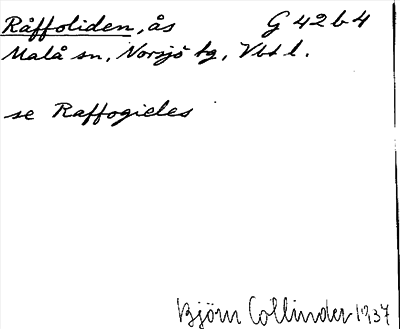 Råffoliden, ås G 42 b 4
Malå sn, Norsjö tg, Vbt l.
se Raffogieles
Björn Collinder 1937